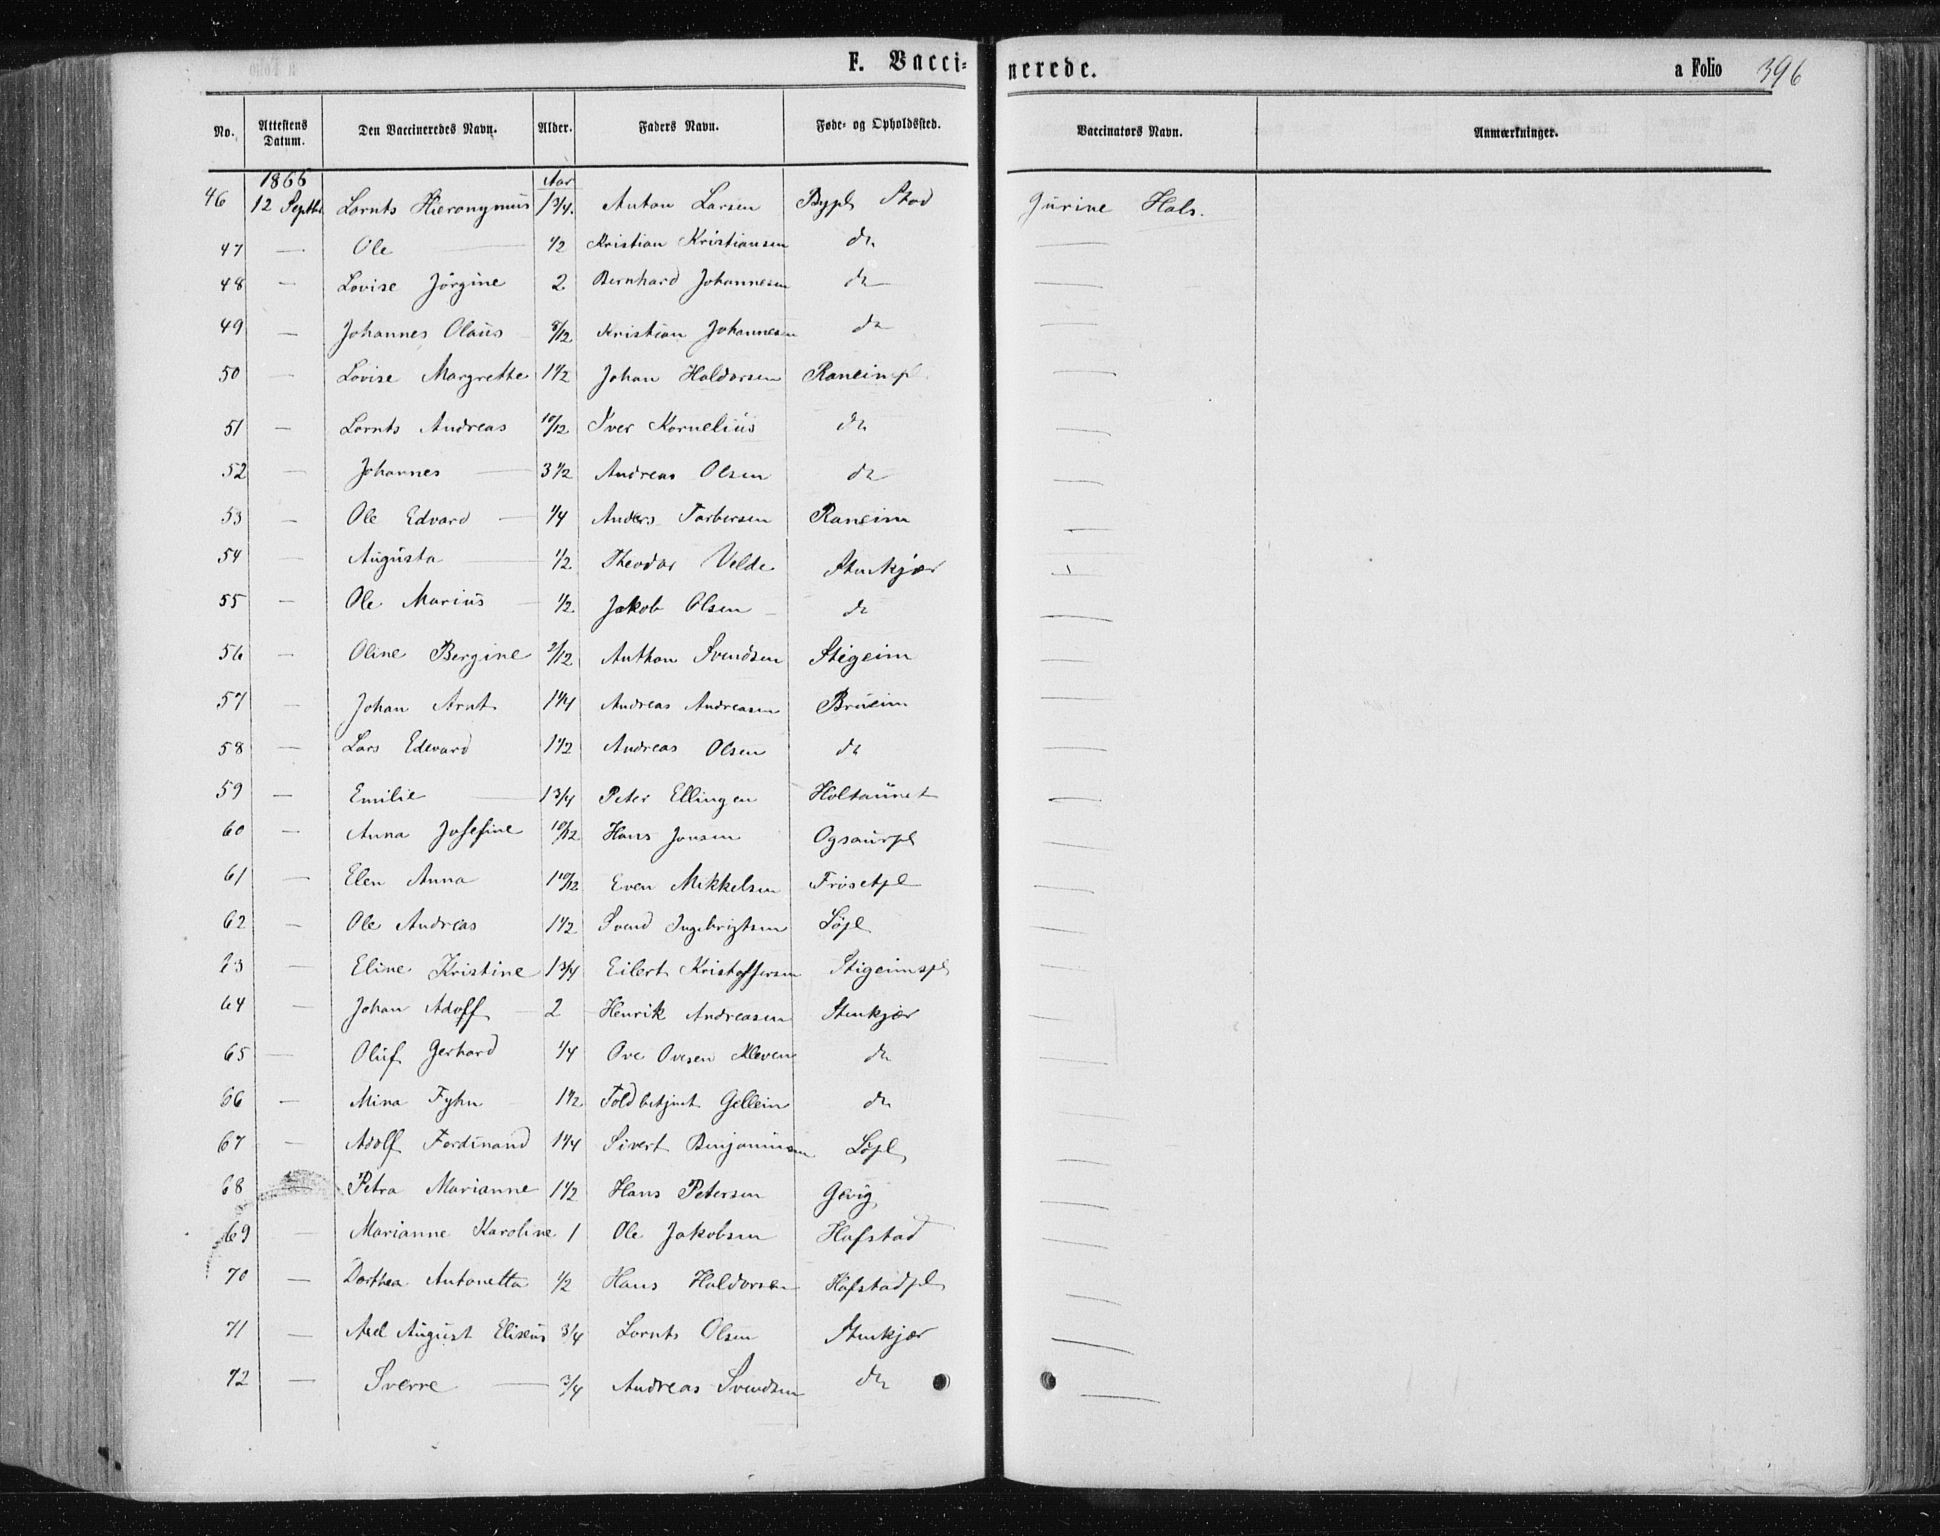 F. Vaccinerede. a Folio 396
No. Attestens Datum. Den Vaccineredes Navn. Alder. Faders Navn. Føde- og Opholdssted. Vaccinators Navn. Anmærkninger.
1866 Aar
46 12 Septbr Lornts Hieronymus 1 3/4. Anton Larsen Bypl Stod Jurine Hals.
47 — Ole — 1/2 Kristian Kristiansen do —
48 — Lovise Jørgine 2 Bernhard Johannesen do —
49 — Johannes Olaus 8/12 Kristian Johannesen do —
50 — Lovise Margrethe 1 1/2 Johan Haldorsen Raneimpl —
51 — Lornts Andreas 10/12 Iver Kornelius do —
52 — Johannes — 3 1/2 Andreas Olsen do —
53 — Ole Edvard — 1/4 Anders Torbersen Raneim —
54 — Augusta — 1/2 Theodor Velde Stenkjær —
55 — Ole Marius — 1/2 Jakob Olsen do —
56 — Oline Bergine 2/12 Anthon Svendsen Stigeim —
57 — Johan Arnt 1 1/4 Andreas Andreasen Brüeim —
58 — Lars Edevard 1 1/2 Andreas Olsen do —
59 — Emilie — 1 3/4 Peter Ellingen Holtaunet —
60 — Anna Josefine 10/12 Hans Jonsen Ogsaurpl —
61 — Elen Anna 1 10/12 Even Mikkelsen Frøsetpl —
62 — Ole Andreas 1 1/2 Svend Ingebrigtsen Løpl —
63 — Eline Kristine 1 3/4 Eilert Kristoffersen Stigeimspl —
64 — Johan Adoff — 2 Henrik Andreasen Stenkjær —
65 — Oluf Gerhard 1/4 Ove Ovesen Kleven do —
66 — Mina Fyhn 1 1/2 Toldbetjent Gellein do —
67 — Adolf Ferdinand 1 1/4 Sivert Benjaminsen Løpl —
68 — Petra Marianne 1 1/2 Hans Petersen Gjevig —
69 — Marianne Karoline 1 Ole Jakobsen Hafstad —
70 — Dorthea Antonetta 1/2 Hans Haldorsen Hafstadpl —
71 — Axel August Eliseus 3/4 Lornts Olsen Stenkjær —
72 — Sverre — 3/4 Andreas Svendsen do —